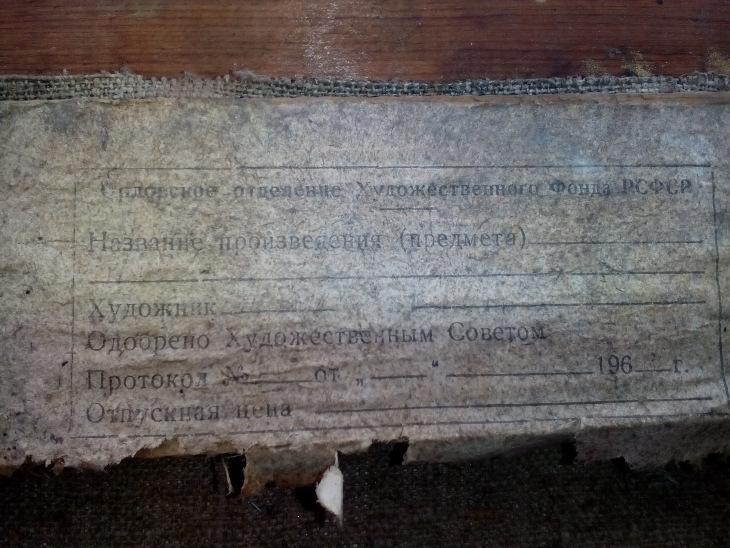 Орловское отделение Художественного Фонда РСФСР
Название произведения (предмета)
Художник
Одобрено Художественным Советом
Протокол № от „ “ 196 г.
Отпускная цена